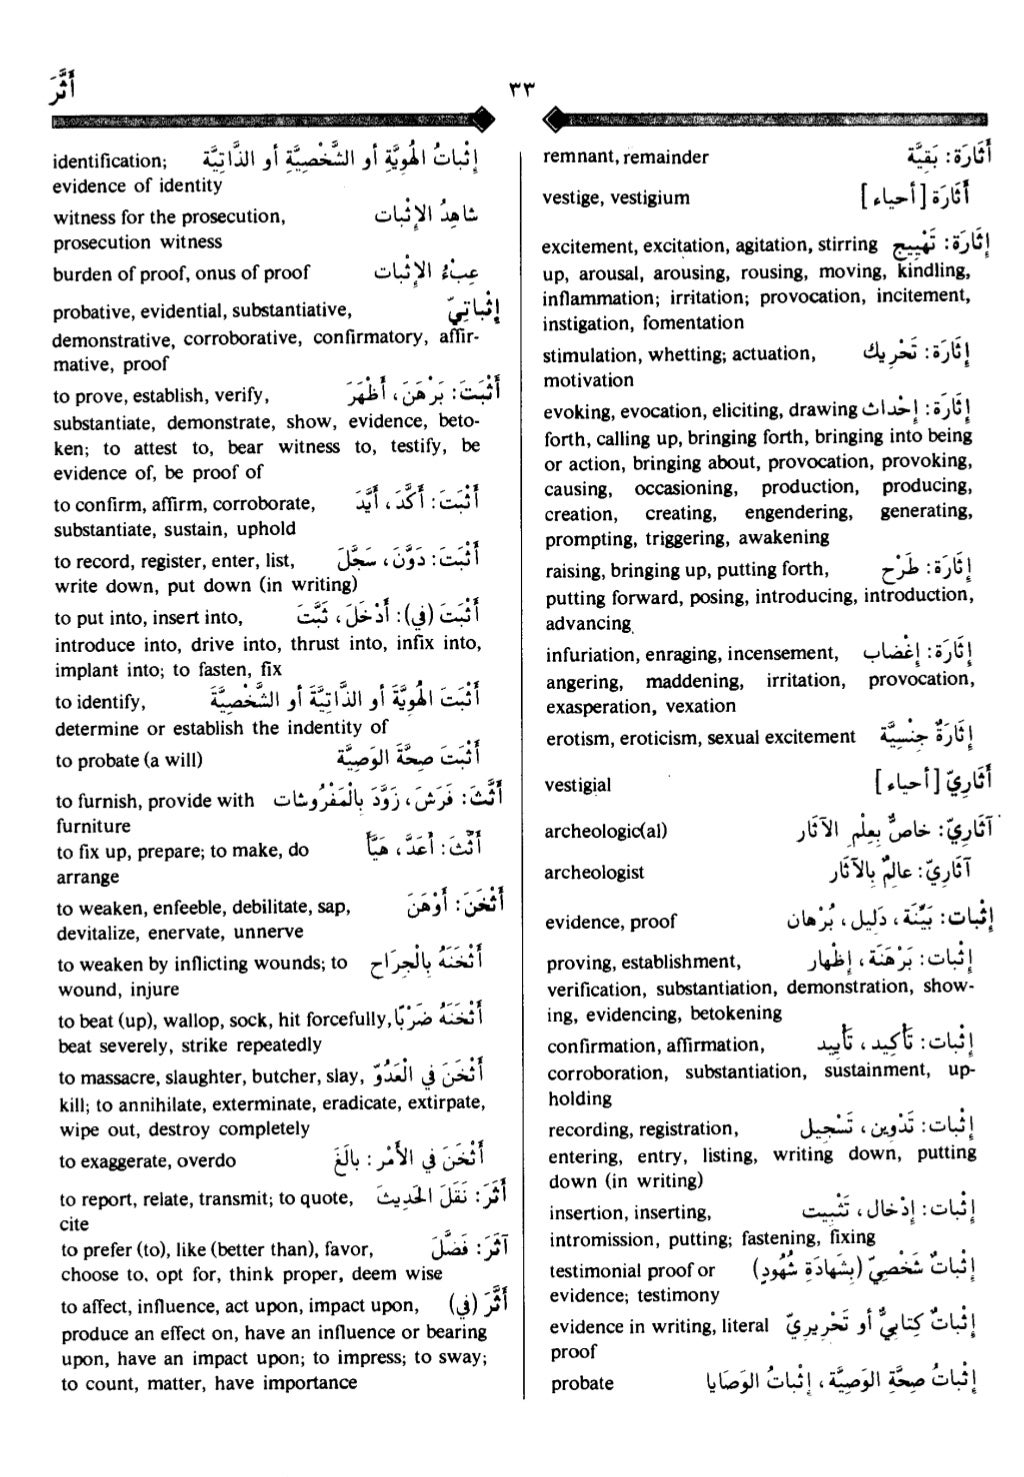 أَثَّرَ
٣٣
أُثَارَة: بَقِيَّة remnant, remainder
أُثَارَة [أحياء] vestige, vestigium
إِثَارَة: تَهْيِيج excitement, excitation, agitation, stirring
up, arousal, arousing, rousing, moving, kindling,
inflammation; irritation; provocation, incitement,
instigation, fomentation
إِثَارَة: تَحْرِيك stimulation, whetting; actuation,
motivation
إِثَارَة: إِحْداث evoking, evocation, eliciting, drawing
forth, calling up, bringing forth, bringing into being
or action, bringing about, provocation, provoking,
causing, occasioning, production, producing,
creation, creating, engendering, generating,
prompting, triggering, awakening
إِثَارَة: طَرْح raising, bringing up, putting forth,
putting forward, posing, introducing, introduction,
advancing
إِثَارَة: إِغْضاب infuriation, enraging, incensement,
angering, maddening, irritation, provocation,
exasperation, vexation
إِثَارَةٌ جِنْسِيَّة erotism, eroticism, sexual excitement
أُثَارِيّ [أحياء] vestigial
آثَارِيّ: خاصٌّ بِعِلْمِ الآثَار archeologic(al)
آثَارِيّ: عالِمٌ بِالآثَار archeologist
إِثْبات: بَيِّنَة، دَلِيل، بُرْهان evidence, proof
إِثْبات: بَرْهَنَة، إِظْهار proving, establishment,
verification, substantiation, demonstration, show-
ing, evidencing, betokening
إِثْبات: تَأْكِيد، تَأْيِيد confirmation, affirmation,
corroboration, substantiation, sustainment, up-
holding
إِثْبات: تَدْوِين، تَسْجِيل recording, registration,
entering, entry, listing, writing down, putting
down (in writing)
إِثْبات: إِدْخال، تَثْبِيت insertion, inserting,
intromission, putting; fastening, fixing
إِثْباتٌ شَخْصِيّ (بِشَهادَةِ شُهُودٍ) testimonial proof or
evidence; testimony
إِثْباتٌ كِتابِيٌّ أو تَحْرِيرِيّ evidence in writing, literal
proof
إِثْباتُ صِحَّةِ الوَصِيَّة، إِثْباتُ الوَصَايا probate
إِثْباتُ الهُوِيَّةِ أو الشَّخْصِيَّةِ أو الذَّاتِيَّة identification;
evidence of identity
شاهِدُ الإِثْبات witness for the prosecution,
prosecution witness
عِبْءُ الإِثْبات burden of proof, onus of proof
إِثْباتِيّ probative, evidential, substantiative,
demonstrative, corroborative, confirmatory, affir-
mative, proof
أَثْبَتَ: بَرْهَنَ، أَظْهَرَ to prove, establish, verify,
substantiate, demonstrate, show, evidence, beto-
ken; to attest to, bear witness to, testify, be
evidence of, be proof of
أَثْبَتَ: أَكَّدَ، أَيَّدَ to confirm, affirm, corroborate,
substantiate, sustain, uphold
أَثْبَتَ: دَوَّنَ، سَجَّلَ to record, register, enter, list,
write down, put down (in writing)
أَثْبَتَ (في): أَدْخَلَ، ثَبَّتَ to put into, insert into,
introduce into, drive into, thrust into, infix into,
implant into; to fasten, fix
أَثْبَتَ الهُوِيَّةَ أو الذَّاتِيَّةَ أو الشَّخْصِيَّةَ to identify,
determine or establish the indentity of
أَثْبَتَ صِحَّةَ الوَصِيَّة to probate (a will)
أَثَّثَ: فَرَشَ، زَوَّدَ بِالْمَفْرُوشات to furnish, provide with
furniture
أَثَّثَ: أَعَدَّ، هَيَّأَ to fix up, prepare; to make, do
arrange
أَثْخَنَ: أَوْهَنَ to weaken, enfeeble, debilitate, sap,
devitalize, enervate, unnerve
أَثْخَنَهُ بِالْجِرَاح to weaken by inflicting wounds; to
wound, injure
أَثْخَنَهُ ضَرْبًا to beat (up), wallop, sock, hit forcefully,
beat severely, strike repeatedly
أَثْخَنَ في الْعَدُوّ to massacre, slaughter, butcher, slay,
kill; to annihilate, exterminate, eradicate, extirpate,
wipe out, destroy completely
أَثْخَنَ في الأَمْر: بالَغَ to exaggerate, overdo
أَثَرَ: نَقَلَ الحَدِيثَ to report, relate, transmit; to quote,
cite
آثَرَ: فَضَّلَ to prefer (to), like (better than), favor,
choose to, opt for, think proper, deem wise
أَثَّرَ (في) to affect, influence, act upon, impact upon,
produce an effect on, have an influence or bearing
upon, have an impact upon; to impress; to sway;
to count, matter, have importance